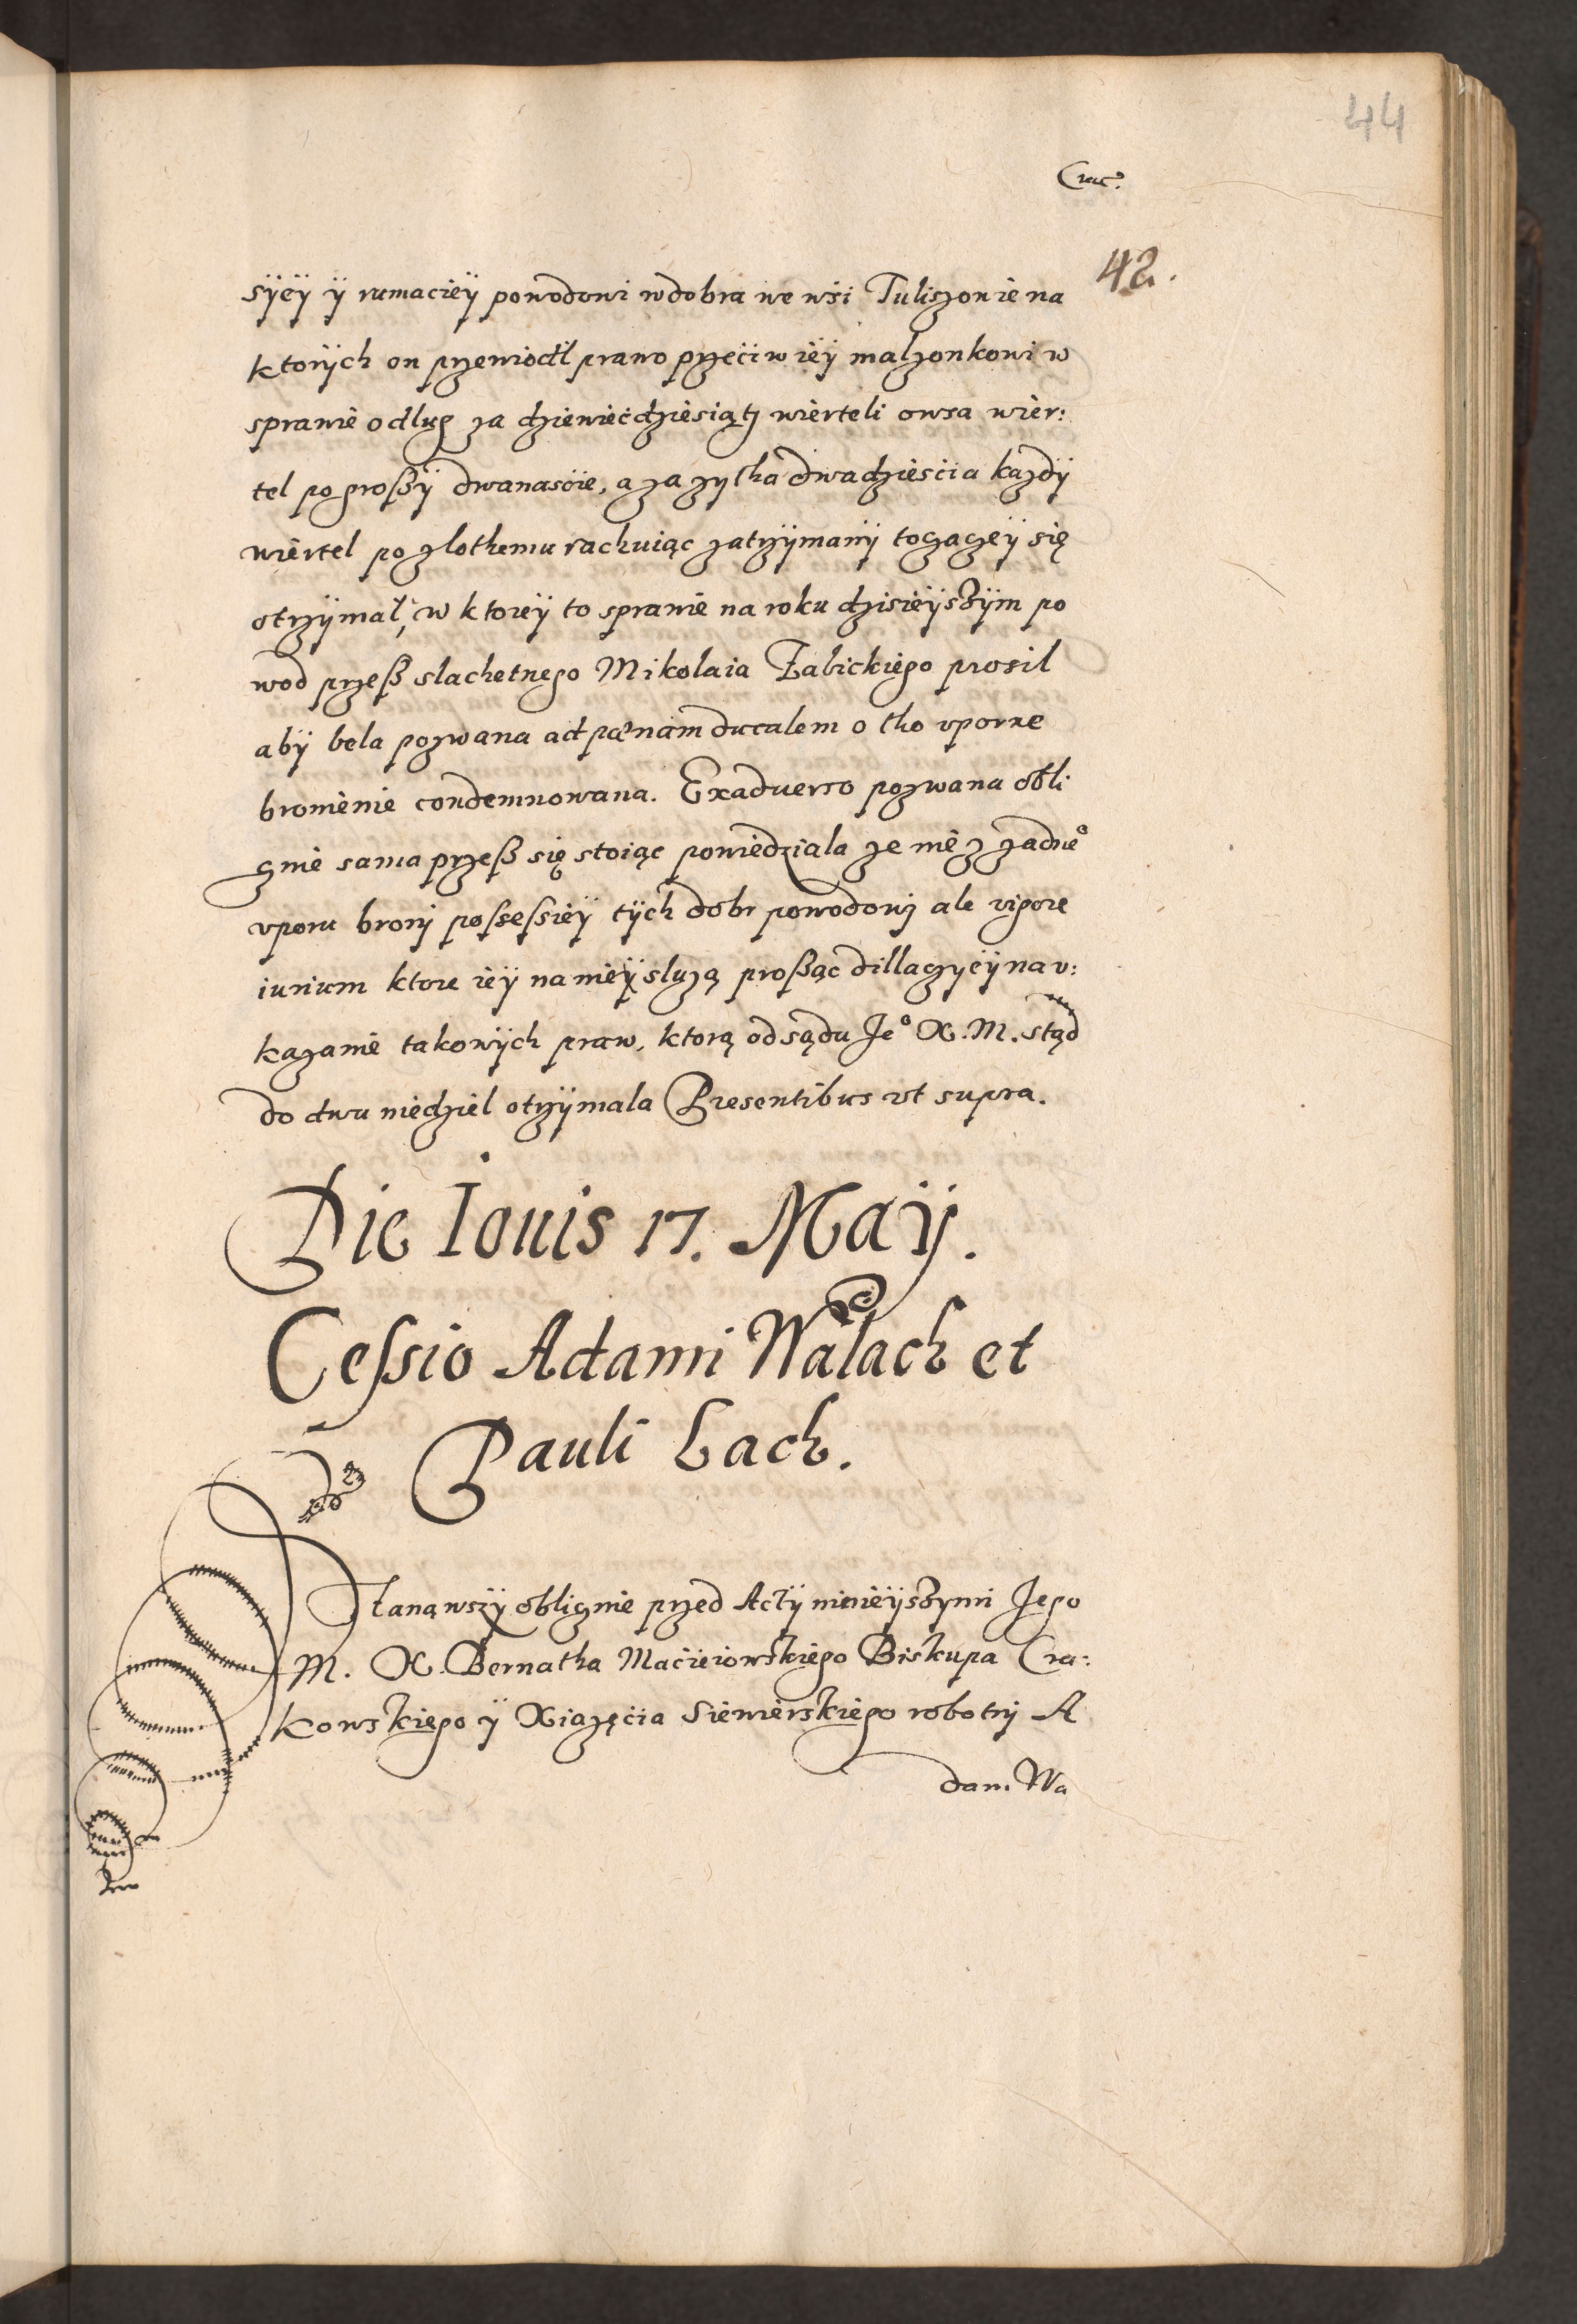 44
Crac.
42.
syey ÿ rumacieÿ powodowi w dobra we wsi Tuliszowie na
ktorÿch on przewiodł prawo przeciw ieÿ malzonkowi w
sprawie o dlug za dziewiećdziesiąti wierteli owsa wier:
tel po groszÿ dwanascie, a za zytha dwadziescia kazdÿ
wiertel po zlothemu rachuiąc zatrzÿmanÿ to zazeÿ się
otrzÿmał, w ktoreÿ to sprawie na roku dzisieÿszÿm po
wod przesz slachetnego Mikolaia Żabickiego prosil
abÿ bela pozwana ad pœnam ducalem o tho vporne
bronienie condemnowana. Exaduerso pozwana obli
cznie sama przesz się stoiąc powiedziala ze nie z zadne°
vporu bronj possessieÿ tÿch dobr powodowj ale vigore
iurium ktore ieÿ na nieÿ sluzą prosząc dillaczyeÿ na v:
kazanie takowÿch praw, ktorą od sądu Je° X. M. stąd
do dwu niedziel otrzÿmala Presentibus vt supra.
Die Iouis 17. Maÿ.
Cessio Adami Wałach et
Pauli Lach.
Stanąwszÿ oblicznie przed Actÿ ninieÿszymi Jego
M. X. Bernatha Macieiowskiego Biskupa Cra:
kowskiego ÿ Xiazęcia Siewierskiego robotny A
dam Wa